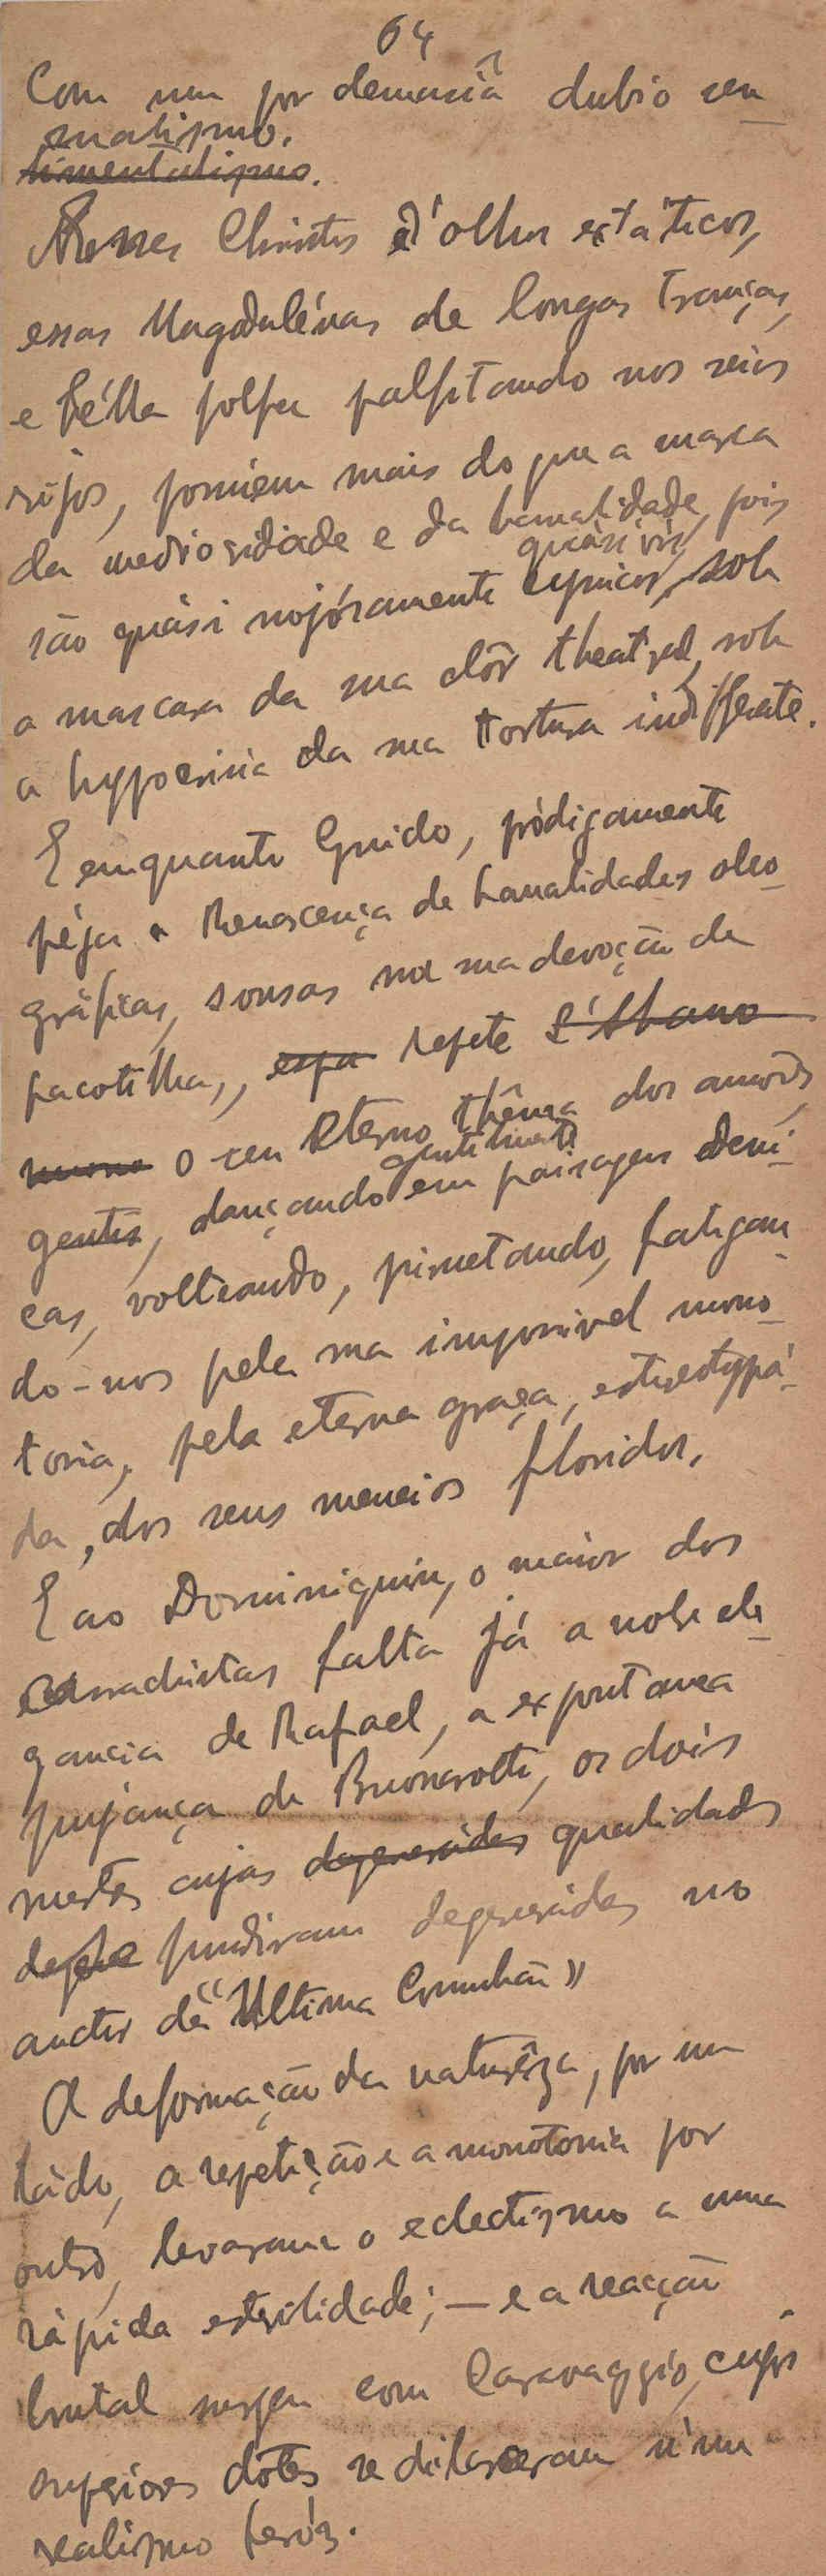 64
Com um por demasia dubio sen-
sualismo.
timentalismo.
Esses Christos d'olhos extáticos,
essas Magdalénas de longas tranças,
e bélla polpa palpitando nos seios
rijos, possuem mais do que a marca
da mediocridade e da banalidade, pois
quási vis
são quási nojósamente cynicos, sob
a mascara da sua dôr theatral, sob
a hypocrisia da sua tortura indifferente.
E emquanto Guido, pródigamente
péja a Renascença de banalidades oleo-
gráficas, sonsas na sua devoção de
pacotilha, repete l'Albano
o seu eterno thêma dos amores
gentilmente
gentis, dançando em paisagens edeni-
cas, volteando, piruetando, fatigan-
do-nos pela sua impossivel mono-
tonia, pela eterna graça, esterestypá-
da, dos seus meneios floridos.
E ao Dominiquin, o maior dos
carrachistas falta já a nobre ele-
gancia de Rafael, a expontanea
pujança de Buonarotti, os dois
mestres cujas degeneridas qualidades
fundiram degeneridas no
auctor da "Ultima Comunhão"
A deformação da naturêza, por um
ládo, a repetição e a monotonia por
outro, levaram o eclectismo a uma
rápida esterilidade; — e a reacção
brutal surgeu com Caravaggio, cujos
superiores dótes se dilaceram n'um
realismo feróz.